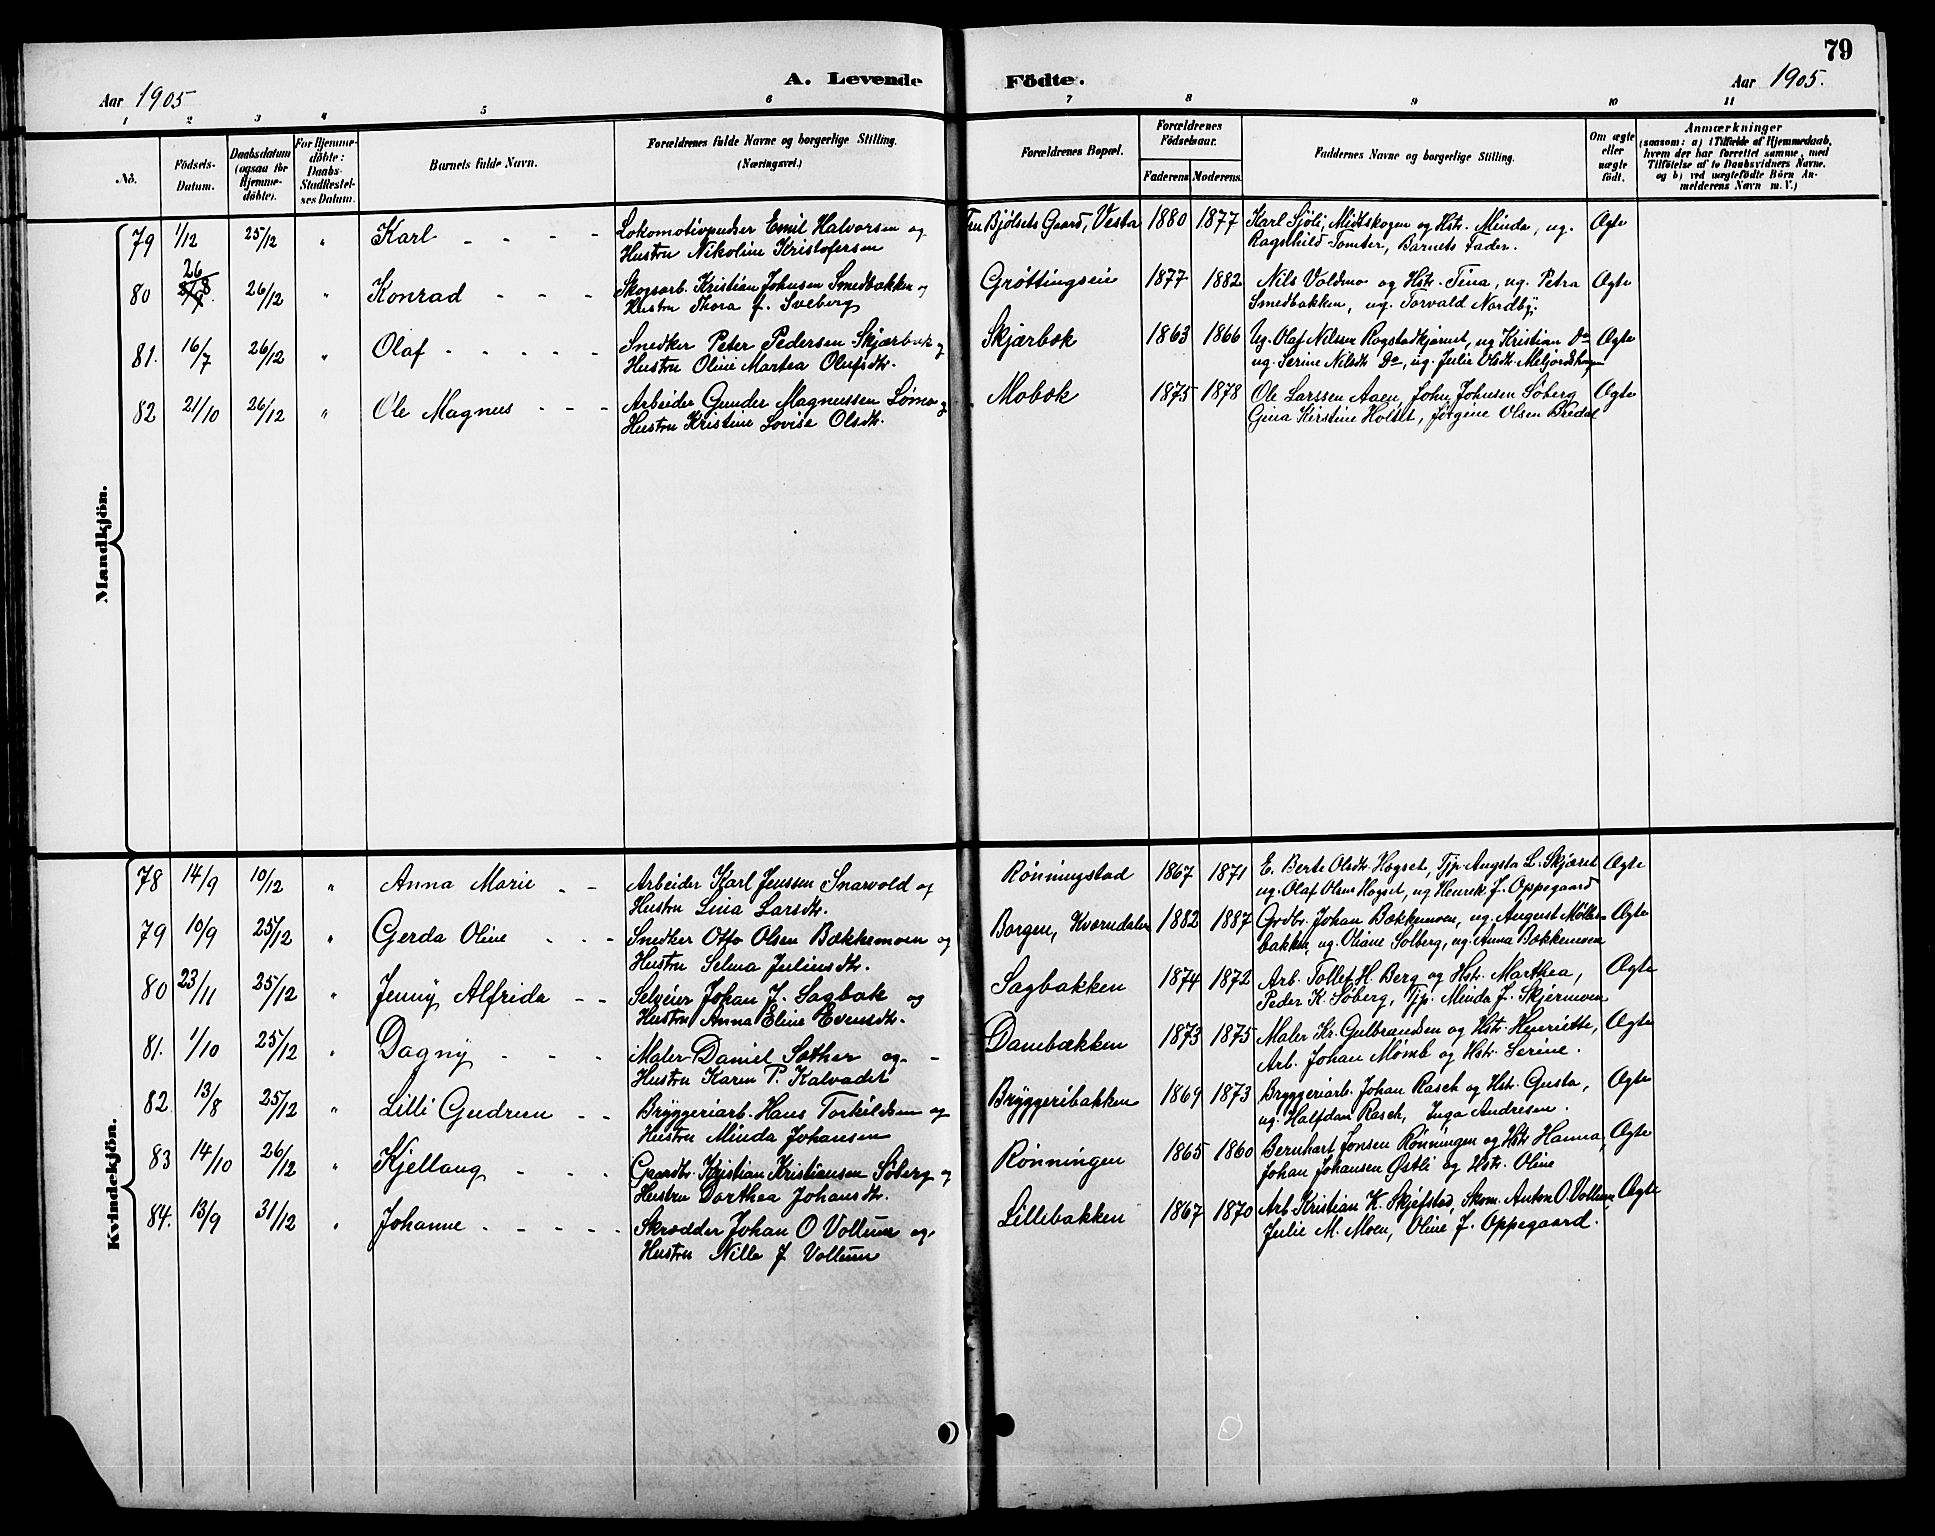 79
A. Levende Födte.
Aar 1905
Aar 1905.
1 2 3 4 5 6 7 8 9 10 11
No.
Födsels-Datum.
Daabsdatum (ogsaa for Hjemme-döbte).
For Hjemme-döbte: Daabs-Stadfæstel-ses Datum.
Barnets fulde Navn.
Forældrenes fulde Navne og borgerlige Stilling. (Næringsvei.)
Forældrenes Bopæl.
Forældrenes Födselsaar.
Faderens Moderens.
Faddernes Navne og borgerlige Stilling.
Om ægte eller uægte födt.
Anmærkninger
(saasom: a) i Tilfælde af Hjemmedaab, hvem der har forrettet samme, med Tilföielse af to Daabsvidners Navne, og b) ved uægtefödte Börn An-melderens Navn m. V.)
Mandkjön.
79 1/12 25/12 " Karl - - - - Lokomotivpudser Emil Halvorsen og Bjölsets Gaard, Vesta 1880 1877 Karl Sjöli, Midtskogen og Hstr. Minda, ug. Ægte
Hustru Nikoline Kristofersen Ragnhild Tomter, Barnets Fader.
80 26/8 26/12 " Konrad - - - Skogsarb. Kristian Johnsen Smedbakken og Gröttingseie 1877 1882 Nils Voldmo og Hstr. Tina, ug. Petra Ægte
Hustru Thora J. Sveberg Smedbakken, ug. Torvald Nordby.
81. 16/7 26/12 " Olaf - - - - - Snedker Peter Pedersen Skjærbæk og Skjærbæk 1863 1866 Ug. Olaf Nilsen Rogstadkjærnet, ug Kristian Do Ægte
Hustru Oline Martea Olufsdtr. ug. Serine Nilsdtr Do, ug. Julie Olsdtr.
82 21/10 26/12 " Ole Magnus - - - Arbeider Gunder Magnussen Lømo og Mobæk 1875 1878 Ole Larssen Aaen, John Johnsen Søberg Ægte
Hustru Kristine Lovise Olsdtr. Gina Kirstine Holset, Jørgine Olsen Bredal
Kvindekjön.
78 14/9 10/12 " Anna Marie - - Arbeider Karl Jenssen Snarvold og Rønningstad 1867 1871 E. Berte Olsdtr. Hogset, Tjp. Augsta L. Skjæret Ægte
Hustru Lina Larsdtr. ug. Olaf Olsen Hogset, ug Henrek J. Oppegaard
79 10/9 25/12 " Gerda Oline - - - Snedker Otto Olsen Bækkemoen og Borgen, Kverndalen 1882 1887 Grdbr. Johan Bækkemoen, ug. August Møller- Ægte
Hustru Selma Juliusdtr. bakken, ug. Oliane Solberg, ug. Anna Bækkemoen
80 23/11 25/12 " Jenny Alfrida - - Selveier Johan J. Sagbak og Sagbakken 1874 1872 Arb. Tollef H. Berg og Hstr. Marthea, Ægte
Hustru Anna Eline Evensdtr. Peder K. Søberg, Tjp. Minda J. Skjermoen
81. 1/10 25/12 " Dagny - - - Maler Daniel Sother og - Dambækken 1873 1875 Maler Kr. Gulbrandsen og Hstr. Henriette, Ægte
Hustru Karen P. Kalvadet Arb. Johan Mømb og Hstr. Serine.
82 13/8 25/12 " Lilli Gudrun - - Bryggeriarb. Hans Torkildsen og Bryggeribakken 1869 1873 Bryggeriarb. Johan Rasch og Hstr. Gusta, Ægte
Hustru Minda Johansen ug. Halfdan Rasch, Inga Andresen.
83 14/10 26/12 " Kjellaug - - - Gaardbr. Kristian Kristiansen Søberg og Rønningen 1865 1860 Bernhart Jonsen Rønningen og Hstr Hanna, Ægte
Hustru Dorthea Johansdtr. Johan Johansen Østli og Hstr. Oline
84. 13/9 31/12 " Johanne - - - - - Skrædder Johan O Vollum og Lillebakken 1867 1870 Arb Kristian K. Skjefstad, Skom. Anton O. Vollum, Ægte
Hustru Nille J Vollum Julie M. Moen, Oline J. Oppegaard.